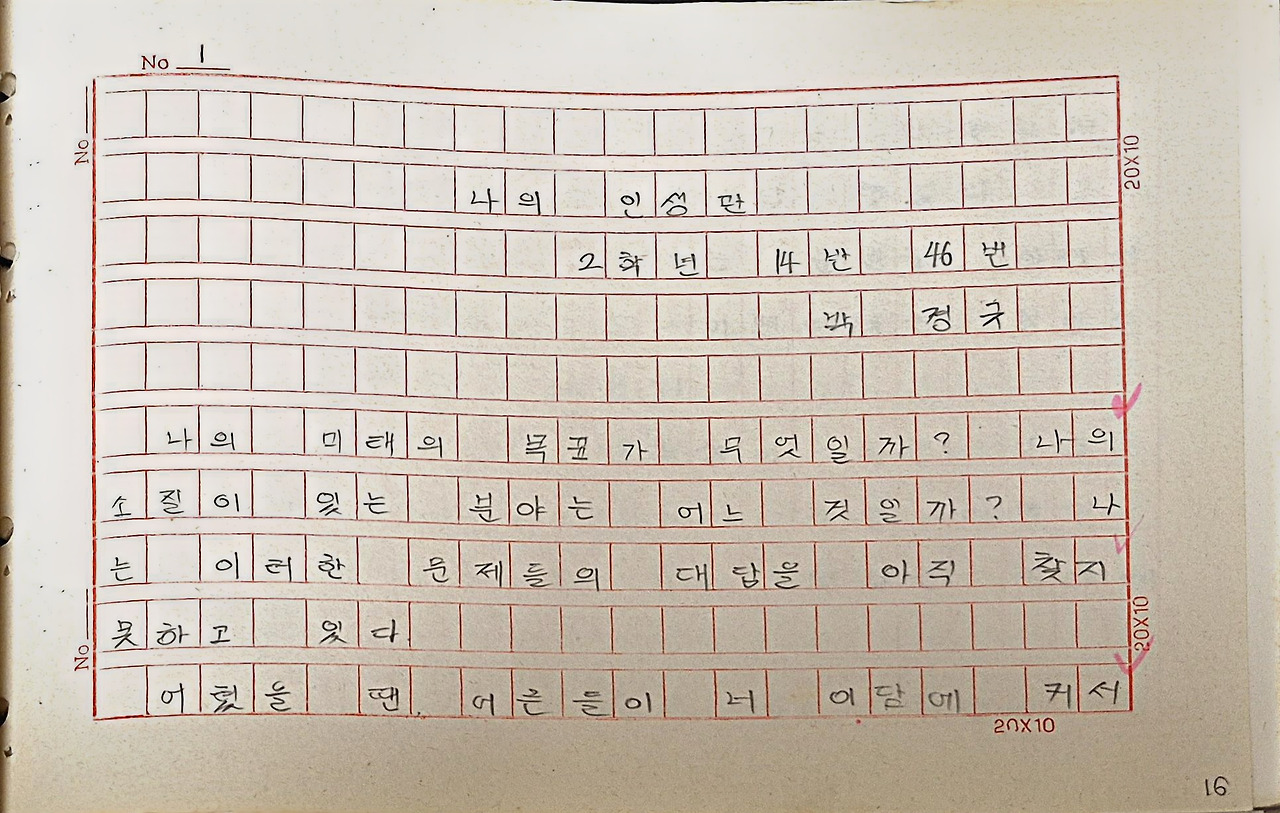 No 1
No
20X10
나의 인성관
2학년 14반 46번
박 정규
나의 미래의 목표가 무엇일까? 나의
소질이 있는 분야는 어느 것일까? 나
는 이러한 문제들의 대답을 아직 찾지
못하고 있다.
어렸을 땐. 어른들이 너 이담에 커서
No
20X10
20X10
16